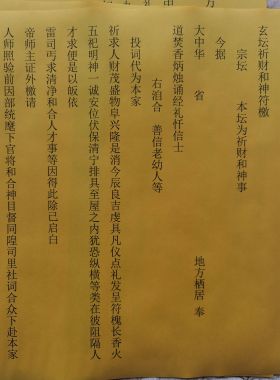 玄坛祈财和神符檄
宗坛　本坛为祈财和神事
今据
大中华　省　地方栖居　奉
道焚香炳烛诵经礼忏信士
右洎合　善信老幼人等
投词代为本家
祈求人财茂盛物阜兴隆是消今辰良吉虔具凡仪点礼发呈符槐长香火
五祀明神一诚安位伏保清宁排具至屋之内犹恐纵横等类在彼阻隔人
才求便是以皈依
雷司丐求清净和合人才事等因得此除己启白
帝师主证外檄请
人师照验前因部统麾下官将和合神目督同隍司里社词合众下赴本家